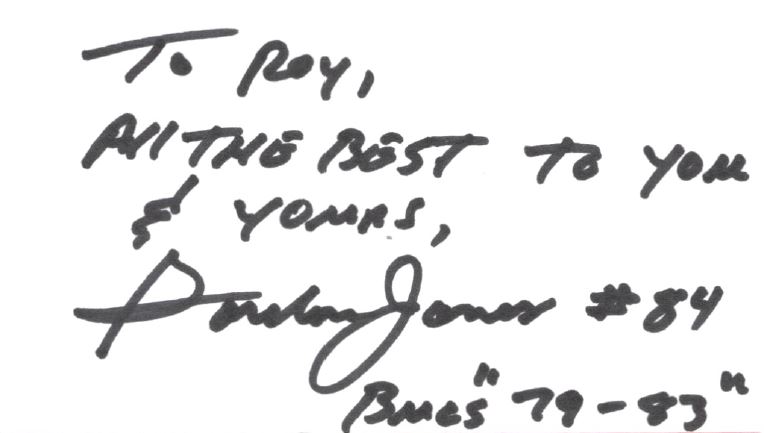 To Roy,
All THE BEST TO YOU
& YOURS,
Gordon Jones #84
BUCS "79-83"